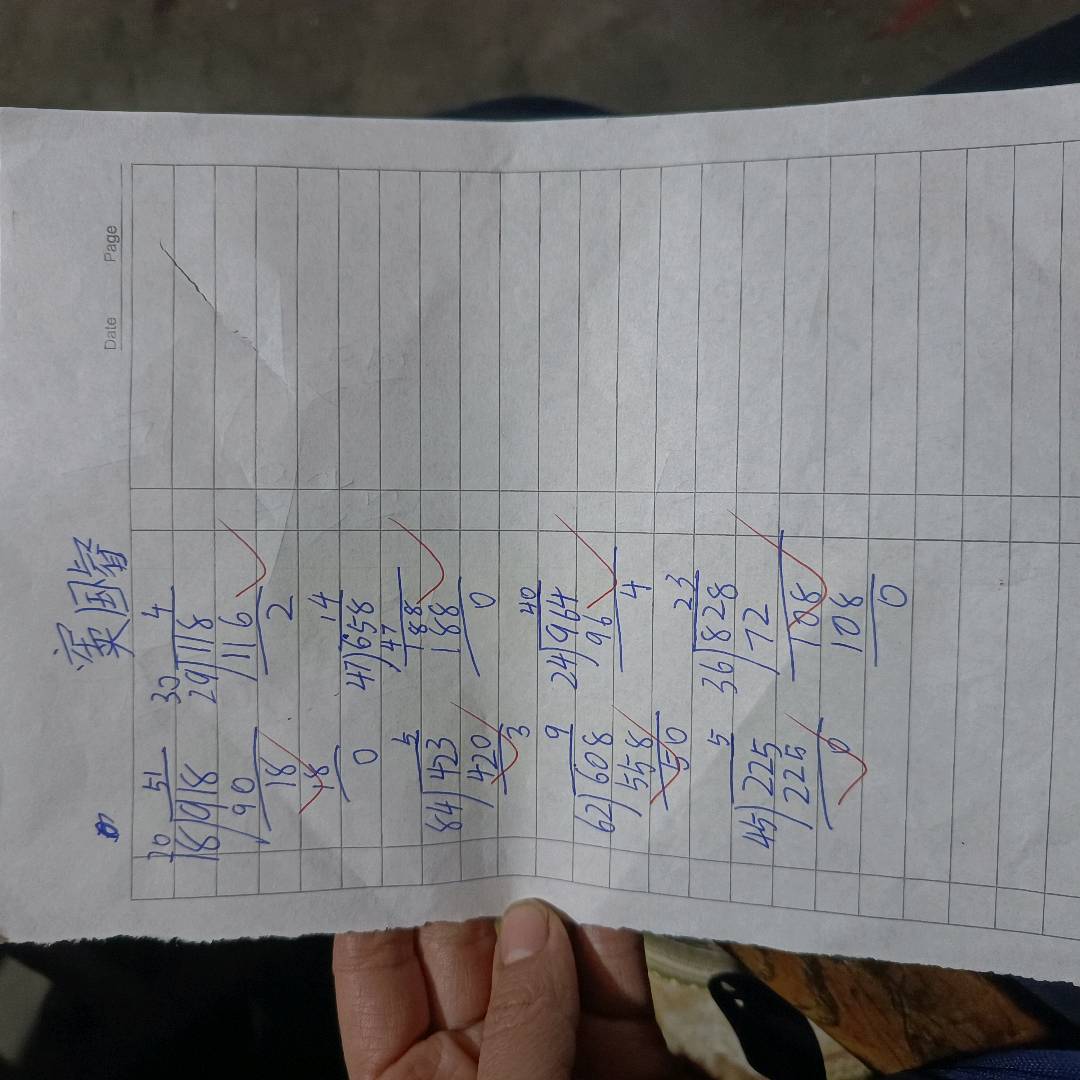 Date Page
梁国
20 51
18)918
90
18
18
0
30 4
29)118
116
2
5
84)423
420
3
14
47)658
47
188
188
0
9
62)608
558
50
40
24)964
96
4
5
45)225
225
0
23
36)828
72
108
108
0